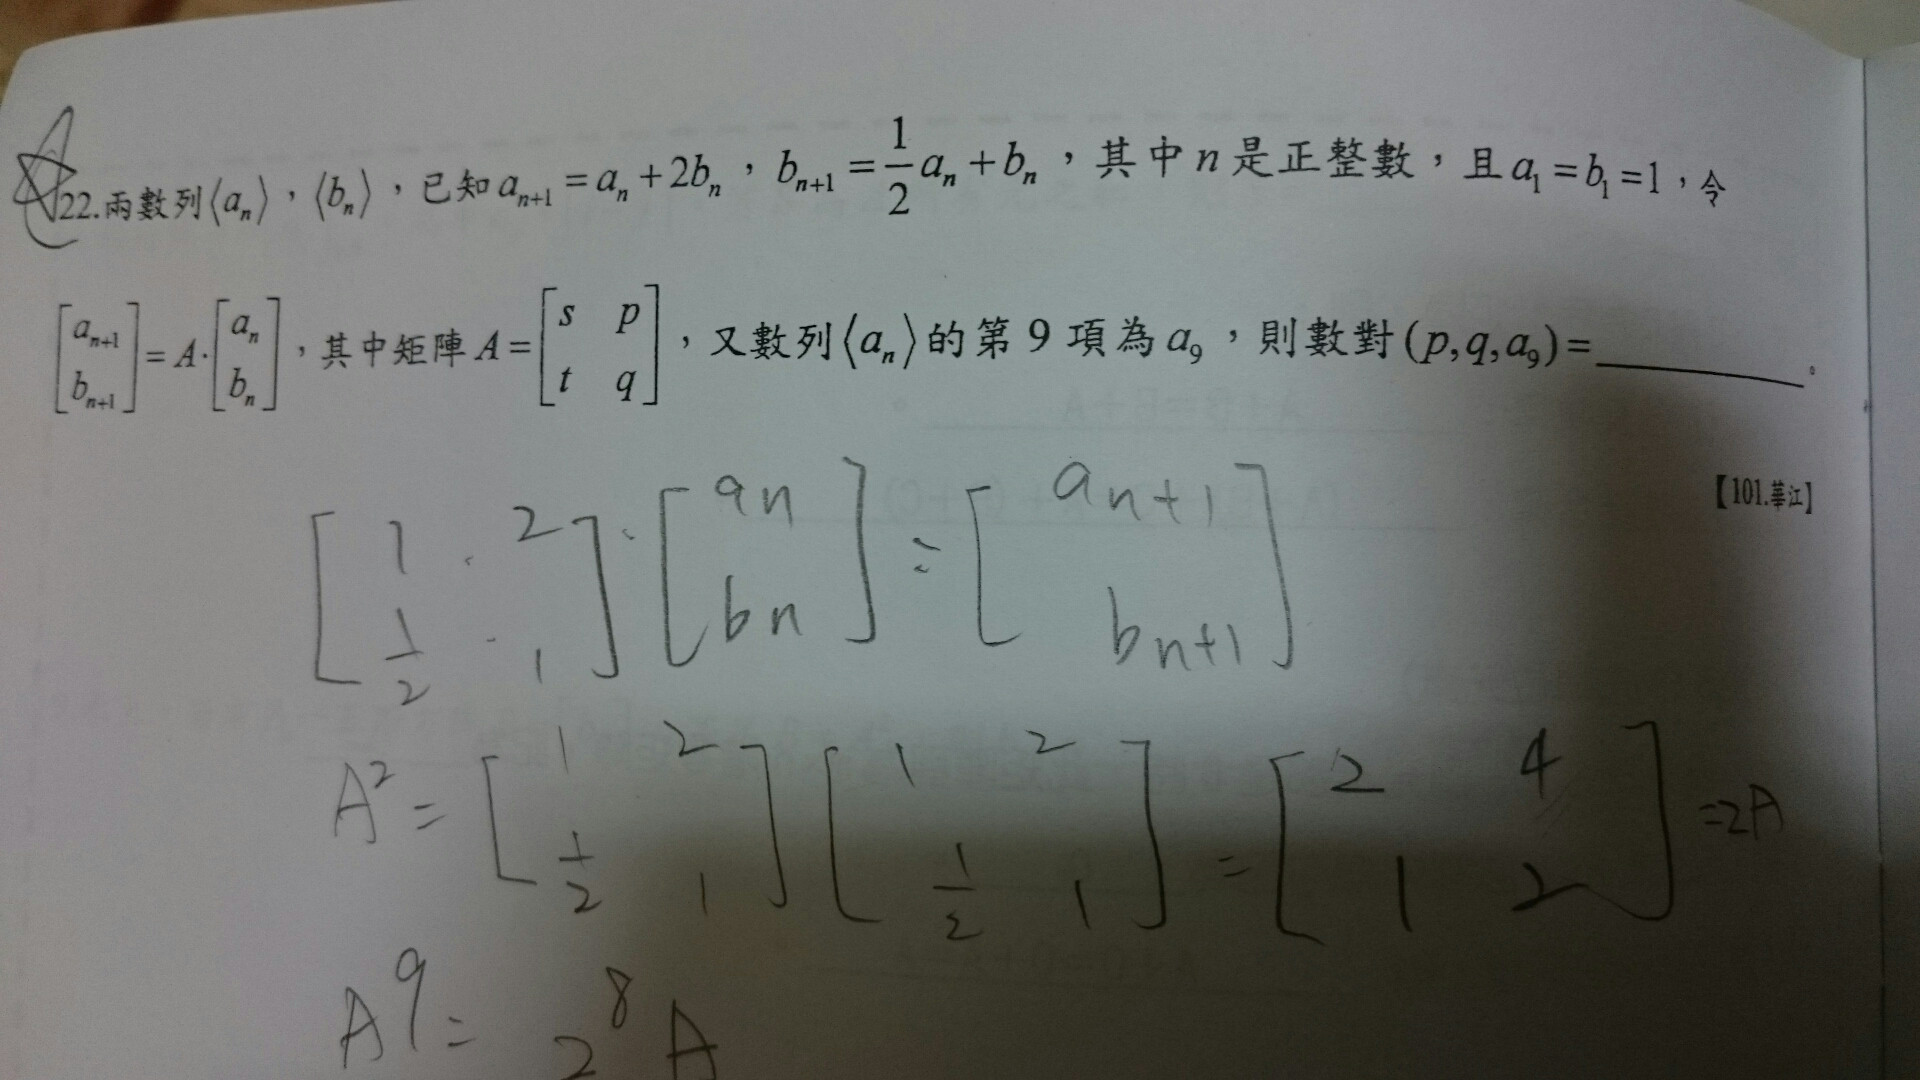 22.兩數列⟨aₙ⟩,⟨bₙ⟩,已知 aₙ₊₁ = aₙ + 2bₙ,bₙ₊₁ = 1/2 aₙ + bₙ,其中 n 是正整數,且 a₁ = b₁ = 1,令
[aₙ₊₁; bₙ₊₁] = A·[aₙ; bₙ],其中矩陣 A = [s p; t q],又數列⟨aₙ⟩的第 9 項為 a₉,則數對 (p, q, a₉) = ______。
【101.華江】
[1 2; 1/2 1]·[an; bn] = [an+1; bn+1]
A² = [1 2; 1/2 1][1 2; 1/2 1] = [2 4; 1 2] = 2A
A⁹ = 2⁸ A